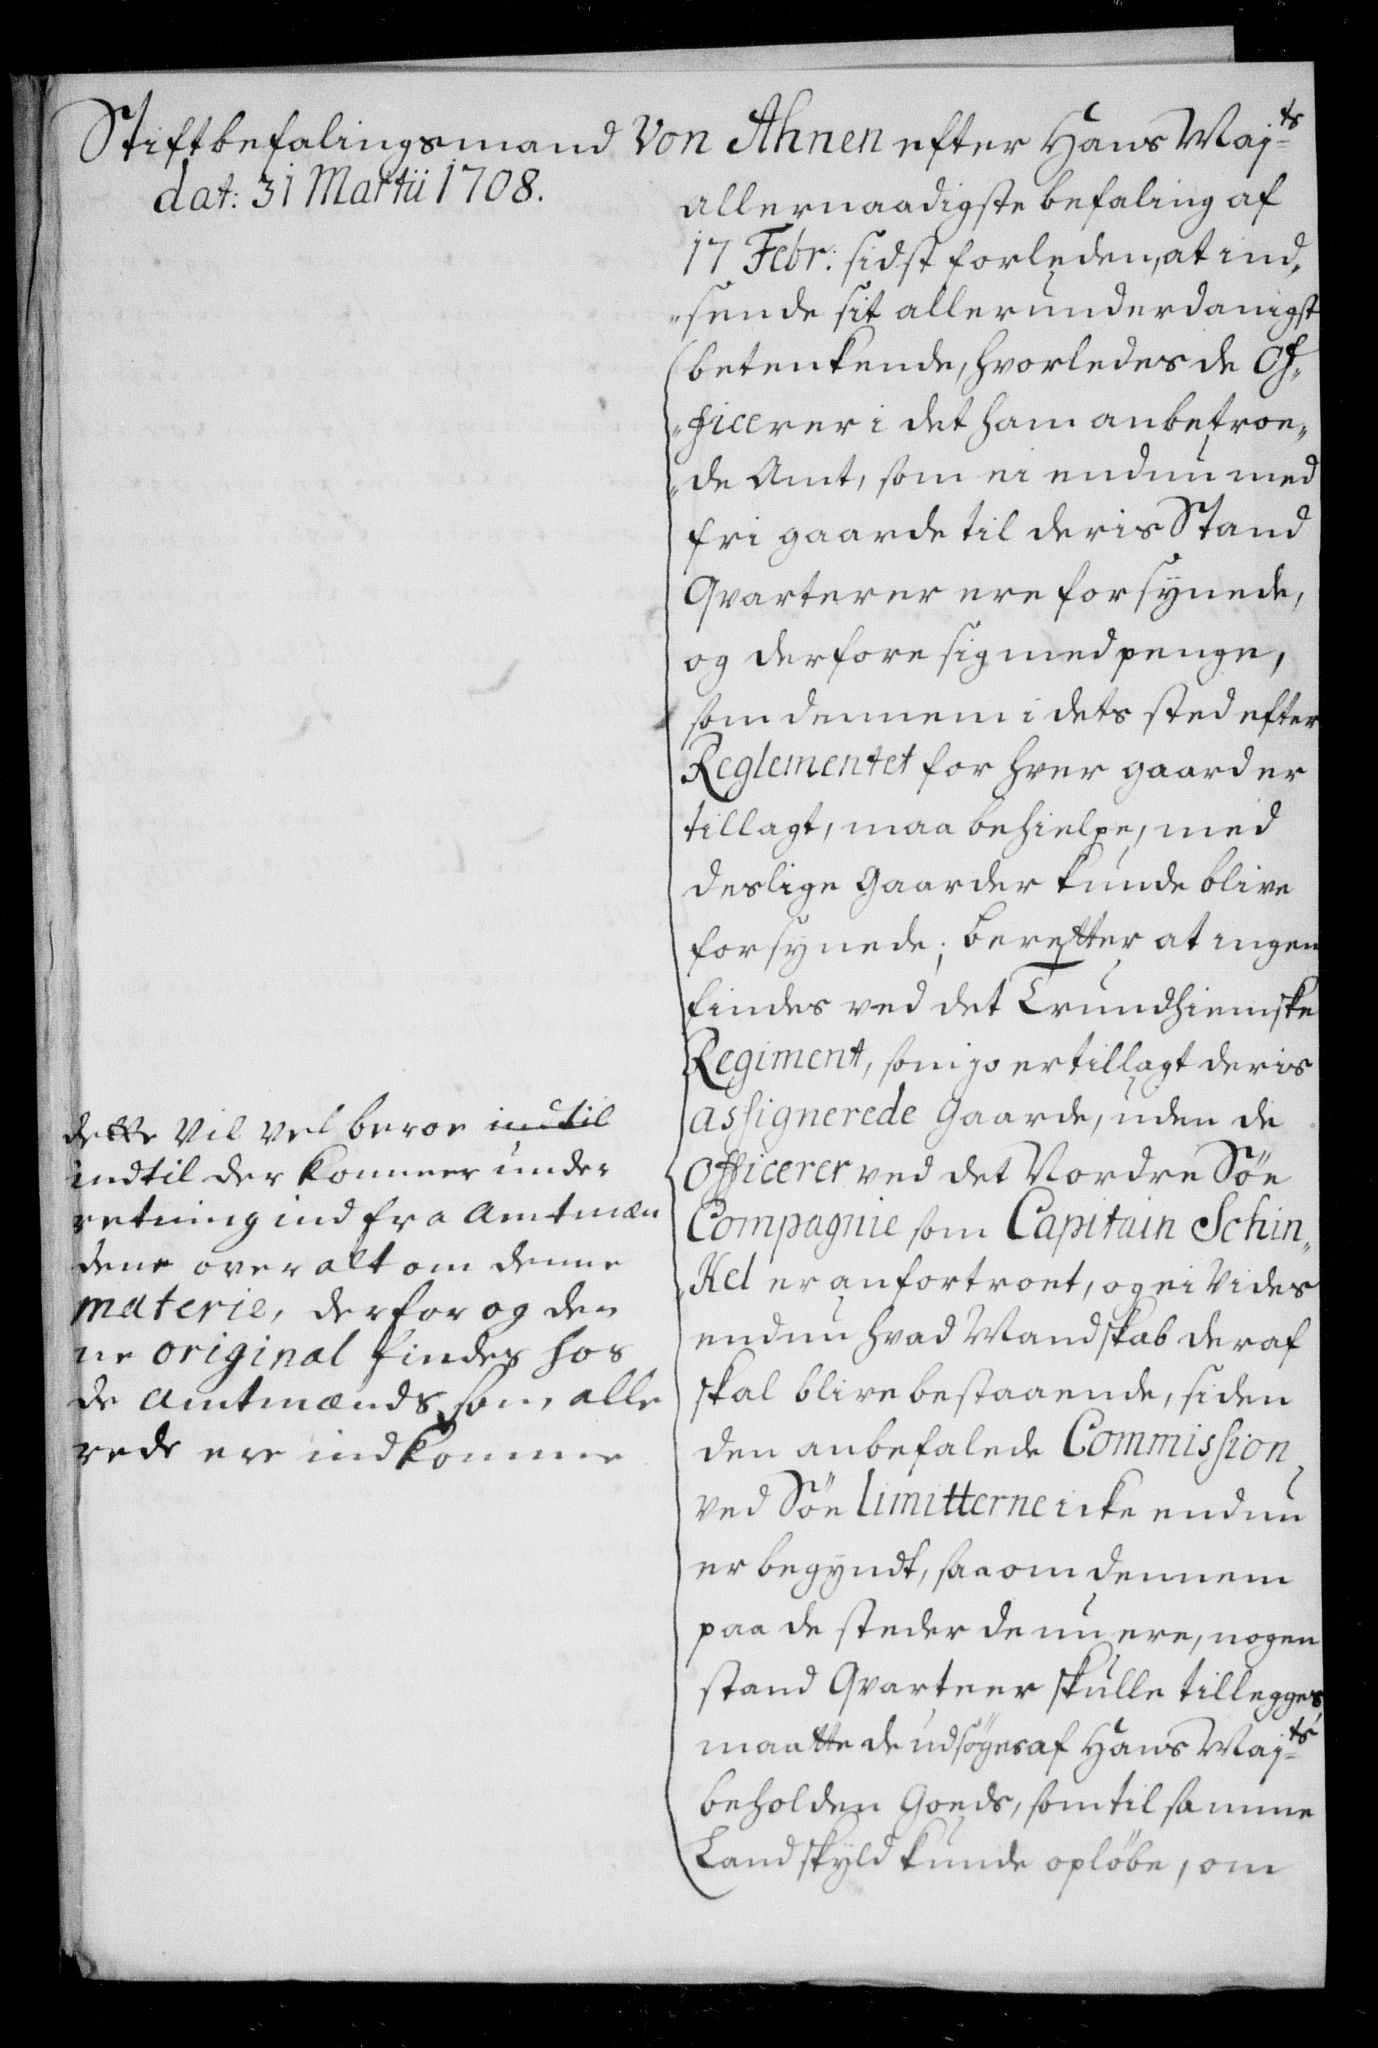 Stiftbefalingsmand Von Ahnen efter Hans Maj:ts
dat: 31 Martii 1708.
allernaadigste befaling af
17 Febr: sidst forleden, at ind„
„sende sit allerunderdanigst
betenkende, hvorledes de Of„
„ficerer i det ham anbetroe„
„de Amt, som ei endnu med
fri gaarde til deris Stand
Qvarterer ere forsynede,
og derfore sig med penge,
som dennem i dets sted efter
Reglementet for hver gaard er
tillagt, maa behielpe, med
deslige Gaarder kunde blive
forsynede; beretter at ingen
findes ved det Trundhiemske
Regiment, som jo er tillagt deris
assignerede Gaarde, uden de
Officerer ved det Nordre Söe
Compagnie som Capitain Schin„
„kel er anfortroet, og ei vides
endnu hvad Mandskab deraf
skal blive bestaaende, siden
den anbefalede Commission
ved Söe limitterne icke endnu
er begyndt, saa om dennem
paa de steder de nu ere, nogen
stand Qvarteer skulle tillegges
maatte de udsöges af Hans Maj:ts
beholden Goeds, som til samme
Landskyld kunde oplöbe, om
dette vil vel beroe indtil
indtil der kommer under
retning ind fra Amtmæn
dene over alt om denne
materie, derfor og den
ne original findes hos
de Amtmænds som alle
rede ere indkomne